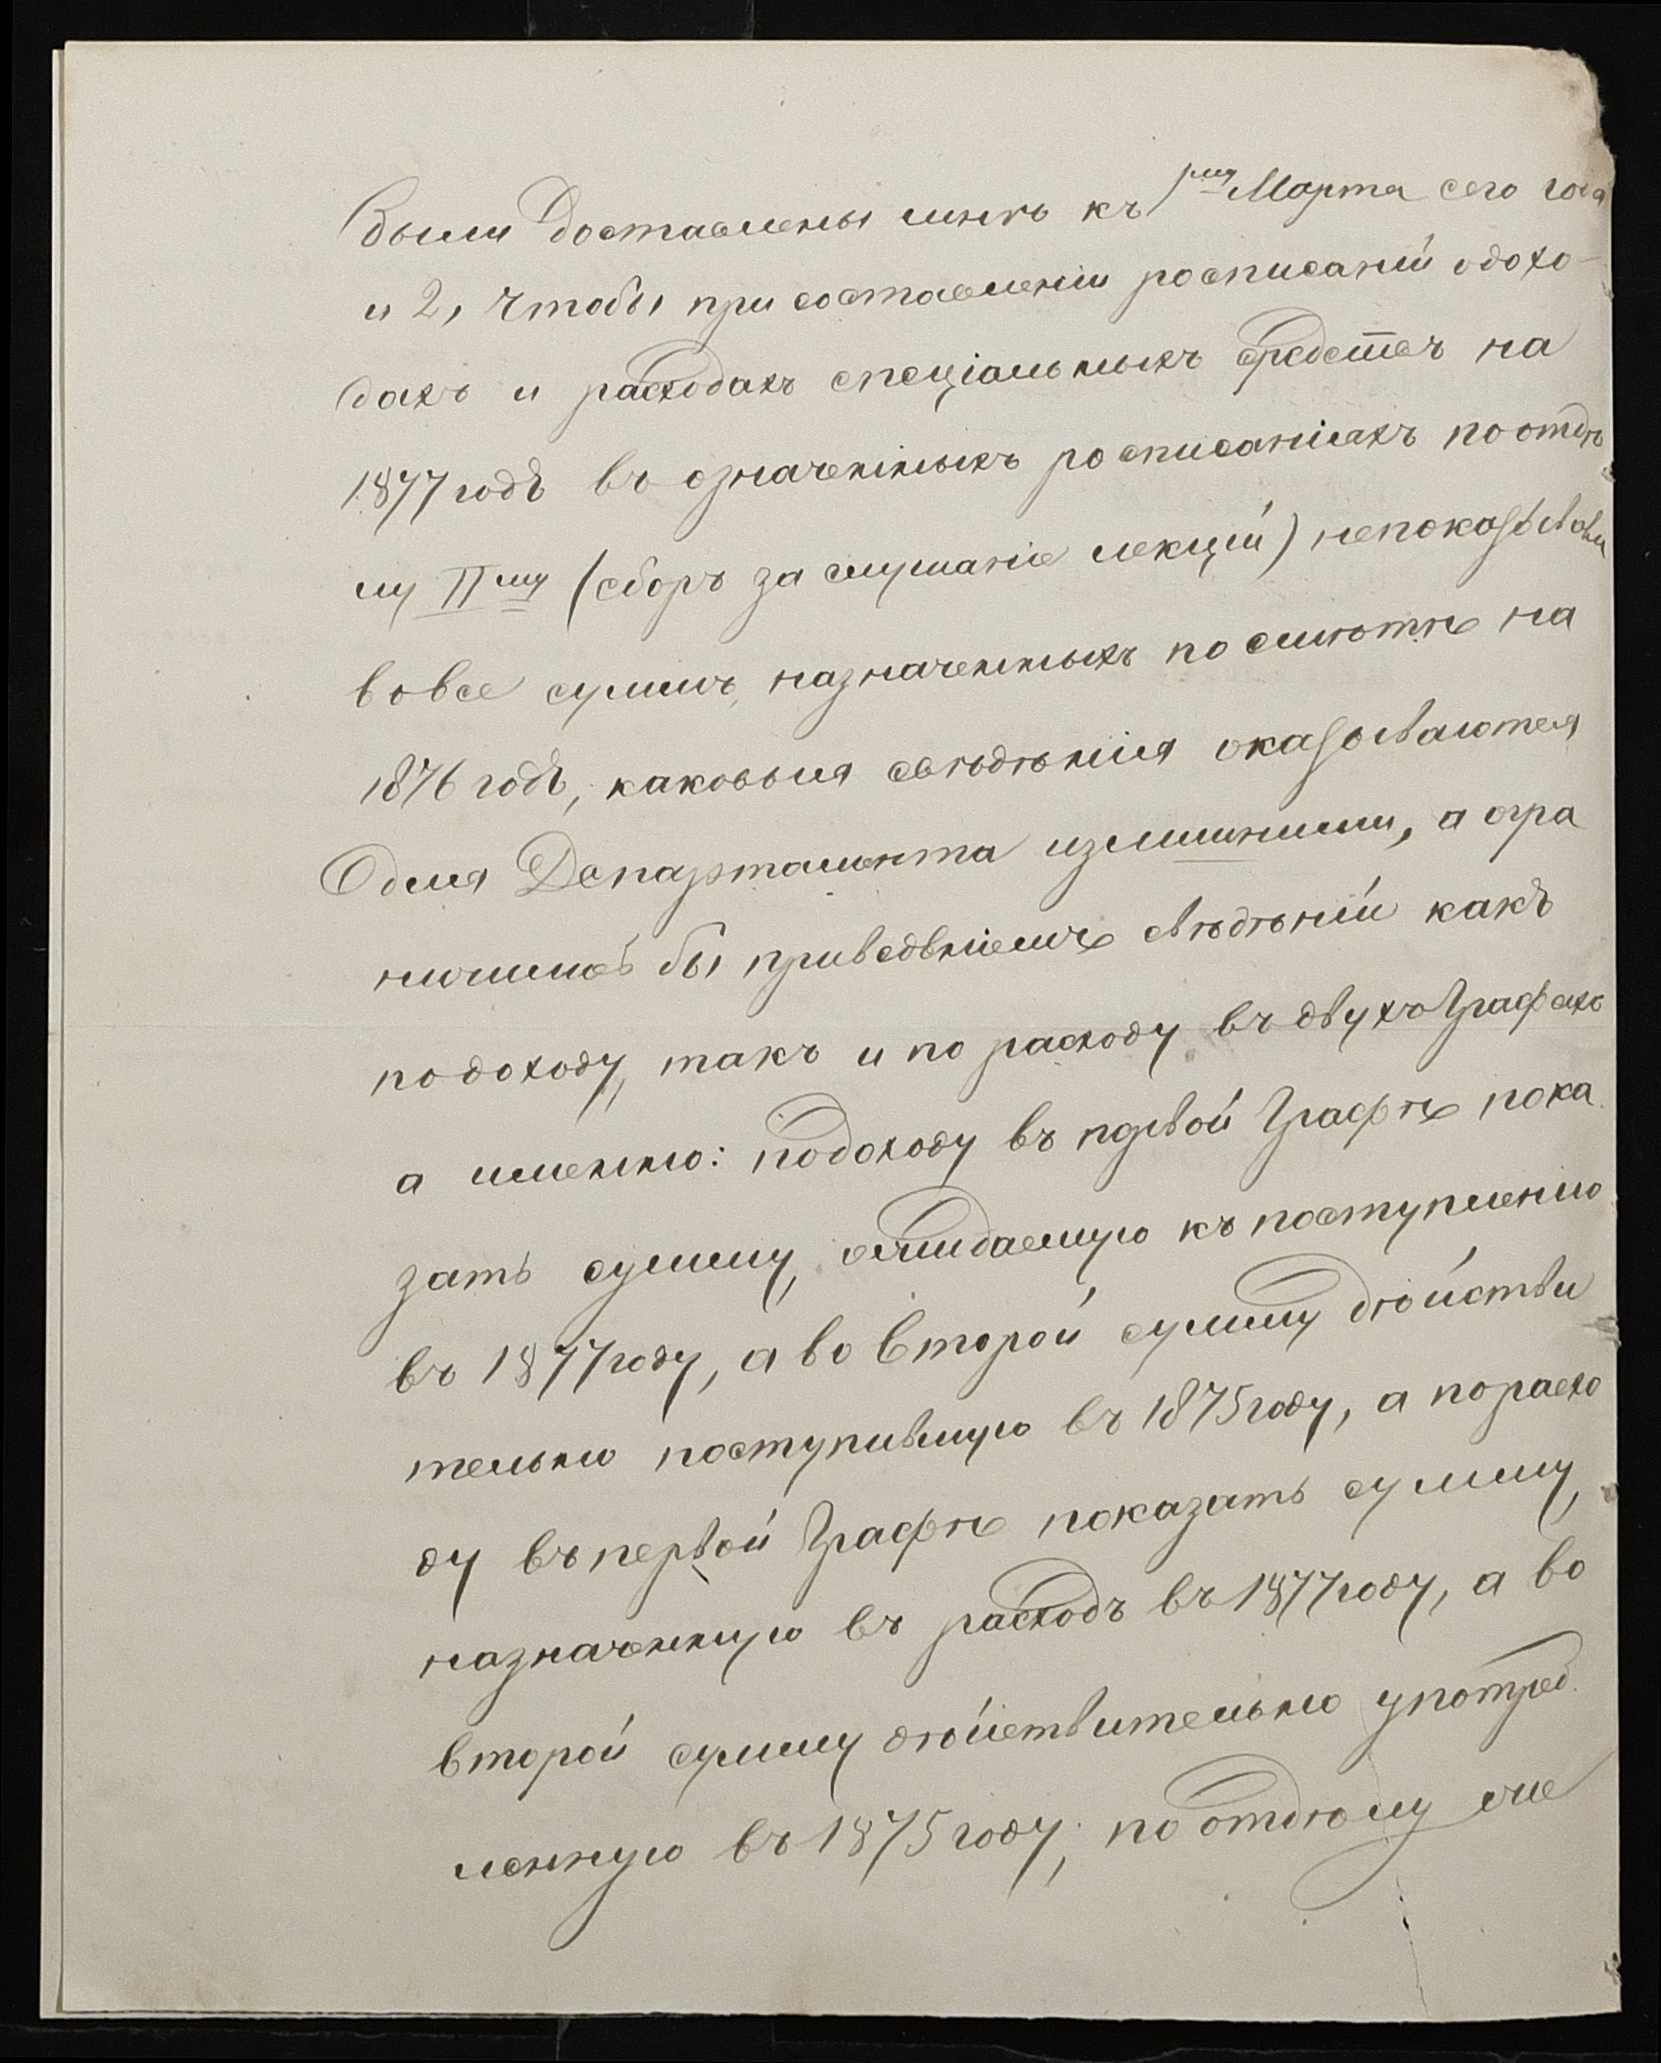 были доставлены мнѣ къ 1му Марта сего года
и 2, чтобы при составленіи росписаній о дохо-
дахъ и расходахъ спеціальныхъ средствъ на
1877 годъ въ означенныхъ росписаніяхъ по отдѣ
лу IIму (сборъ за слушаніе лекцій) не показывали
вовсе суммъ, назначенныхъ по смѣтѣ на
1876 годъ, каковыя свѣдѣнія оказываются
для Департамента излишними, а огра
ничились бы приведеніемъ свѣдѣній какъ
по доходу, такъ и по расходу въ двухъ графахъ
а именно: по доходу въ первой графѣ пока
зать сумму, ожидаемую къ поступленію
въ 1877 году, а во второй сумму дѣйстви
тельно поступившую въ 1875 году, а по расхо
ду въ первой графѣ показать сумму,
назначенную въ расходъ въ 1877 году, а во
второй сумму дѣйствительно употреб
ленную въ 1875 году; по отдѣлу же